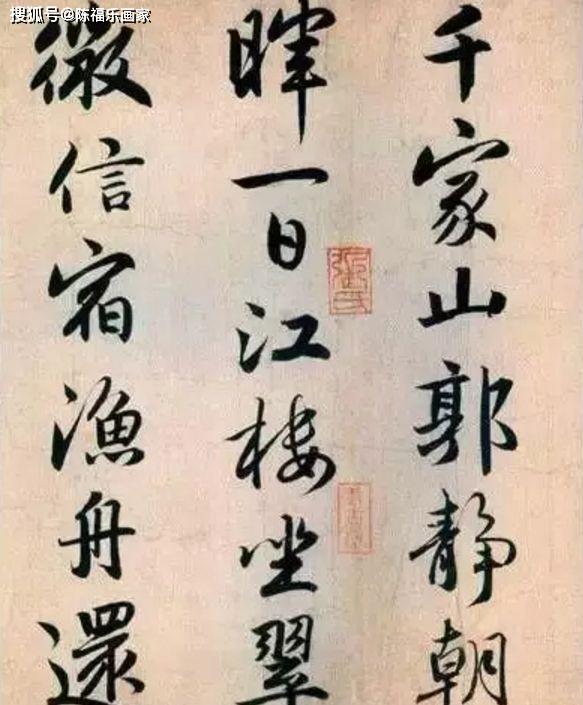 搜狐号@陈福乐画家
千家山郭靜朝
暉一日江樓坐翠
微信宿漁舟還